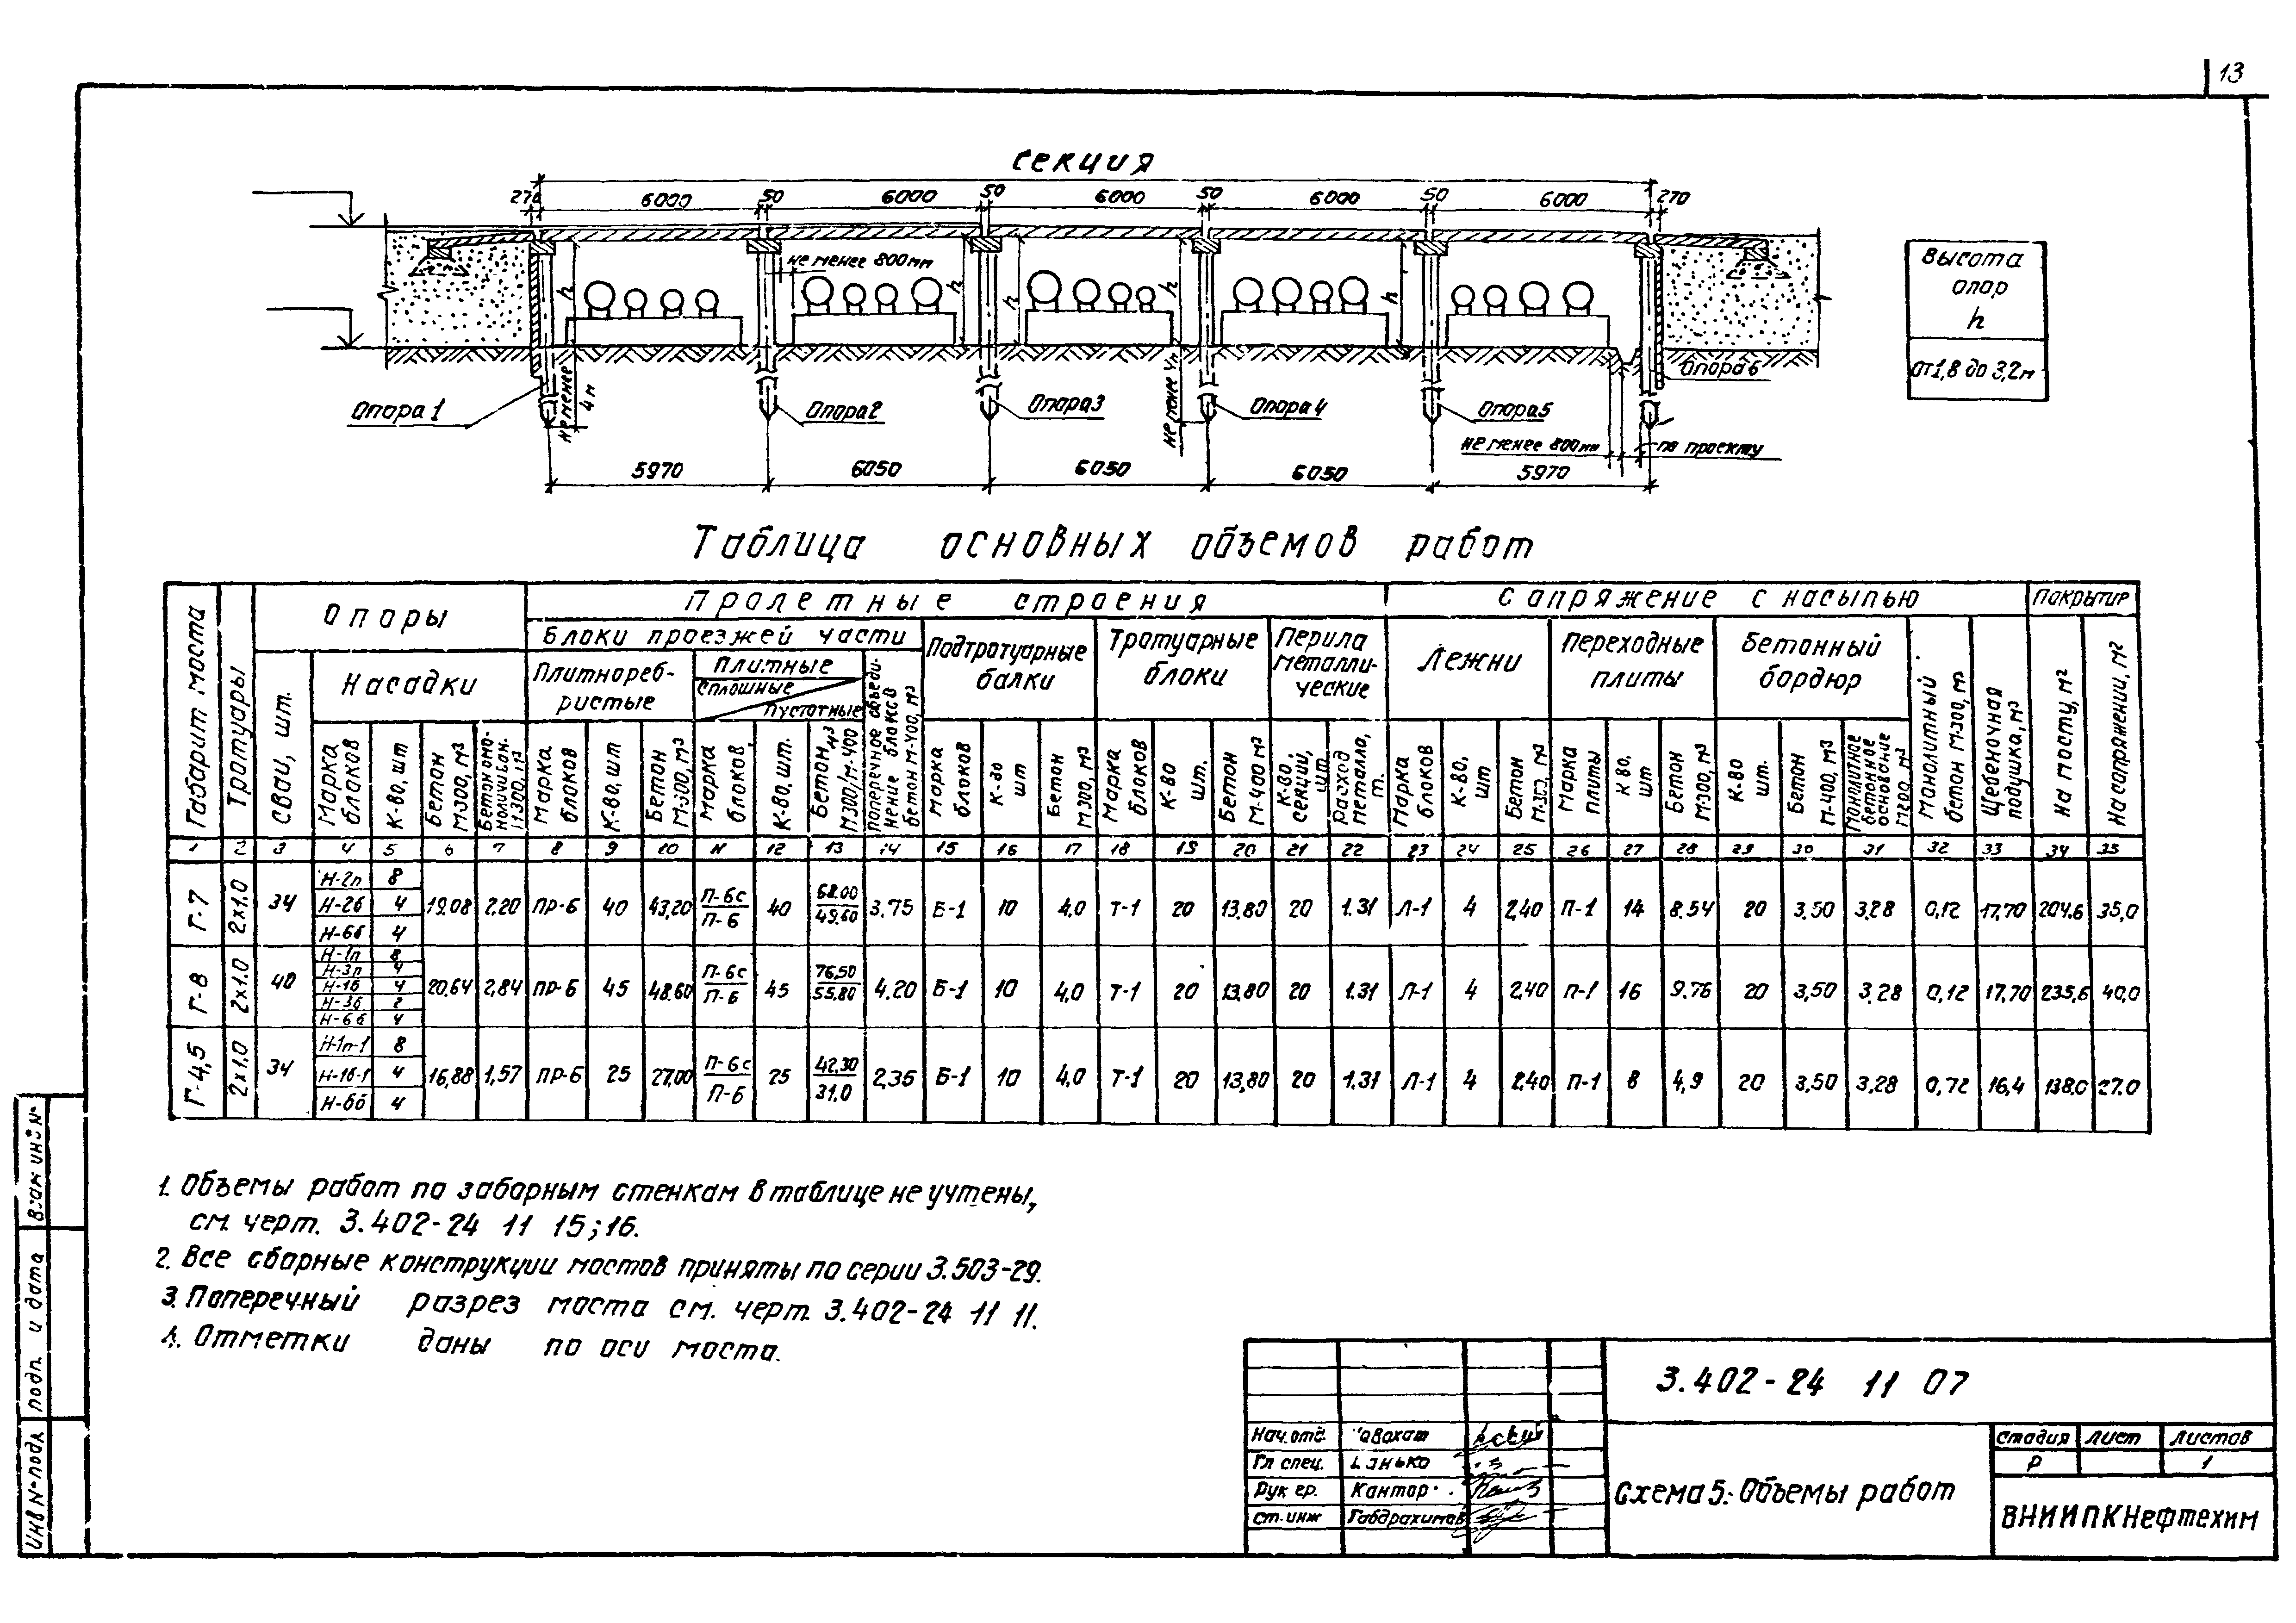 13
секция
270 6000 50 6000 50 6000 50 6000 50 6000 270
не менее 800мм
h h h h h
не менее 4м
не менее 4м
Опора 1 Опора 2 Опора 3 Опора 4 Опора 5 Опора 6
не менее 800мм по проекту
5970 6050 6050 6050 5970
Высота
опор
h
от 1,8 до 3,2м
Таблица основных объемов работ
Габарит моста
Тротуары
Опоры
Сваи, шт.
Насадки
Марка блоков
К-во, шт
Бетон М300, м³
Пролетные строения
Блоки проезжей части
Плитнореб-
ристые
Марка блоков
К-во, шт
Бетон М-300, м³
Плитные
Сплошные
Пустотные
Марка блоков
К-во, шт.
Бетон, м³ М300/М-400
Поперечное объеди-
нение блоков
бетон М-400, м³
Подтротуарные
балки
Марка блоков
К-во шт
Бетон М300, м³
Тротуарные
блоки
Марка блоков
К-во шт.
Бетон М-400 м³
Перила
металли-
ческие
К-во, секции, шт
Расход металла, т.
Сопряжение с насыпью
Лежни
Марка блоков
К-во, шт
Бетон М-300, м³
Переходные
плиты
Марка плиты
К-во, шт
Бетон М-300, м³
Бетонный
бордюр
К-во шт.
Бетон М-400, м³
Монолитное бетонное основание
Монолитный бетон М-300, м³
Щебеночная подушка, м³
Покрытие
На мосту, м²
На сопряжении, м²
1 2 3 4 5 6 7 8 9 10 11 12 13 14 15 16 17 18 19 20 21 22 23 24 25 26 27 28 29 30 31 32 33 34 35
Г-7 2х1.0 34 Н-2п 8 Н-2б 4 Н-6б 4 19.08 2,20 ПР-6 40 43,20 П-6с/П-6 40 68.00/49.60 3,75 Б-1 10 4,0 Т-1 20 13,80 20 1.31 Л-1 4 2,40 П-1 14 8.54 20 3,50 3,28 0,12 17,70 204,6 35,0
Г-8 2х1.0 40 Н-1п 8 Н-3п 4 Н-1б 4 Н-3б 2 Н-6б 4 20,64 2,84 ПР-6 45 48.60 П-6с/П-6 45 76,50/55.80 4,20 Б-1 10 4,0 Т-1 20 13,80 20 1.31 Л-1 4 2,40 П-1 16 9,76 20 3,50 3,28 0,12 17,70 235,6 40,0
Г-4,5 2х1,0 34 Н-1п-1 8 Н-1б-1 4 Н-6б 4 16,88 1,57 ПР-6 25 27,00 П-6с/П-6 25 42.30/31.0 2,35 Б-1 10 4,0 Т-1 20 13,80 20 1.31 Л-1 4 2,40 П-1 8 4,9 20 3,50 3,28 0,72 16,4 138.0 27.0
1. Объемы работ по заборным стенкам в таблице не учтены,
см. черт. 3.402-24 11 15;16.
2. Все сборные конструкции мостов приняты по серии 3.503-29.
3. Поперечный разрез моста см. черт. 3.402-24 11 11.
4. Отметки даны по оси моста.
Взам инв №
подп. и дата
Инв № подл
3.402-24 11 07
Нач. отд.
Гл спец.
Рук гр. Кантор
ст. инж Габдрахимов
Схема 5. Объемы работ
Стадия Лист Листов
Р 1
ВНИИПКНефтехим